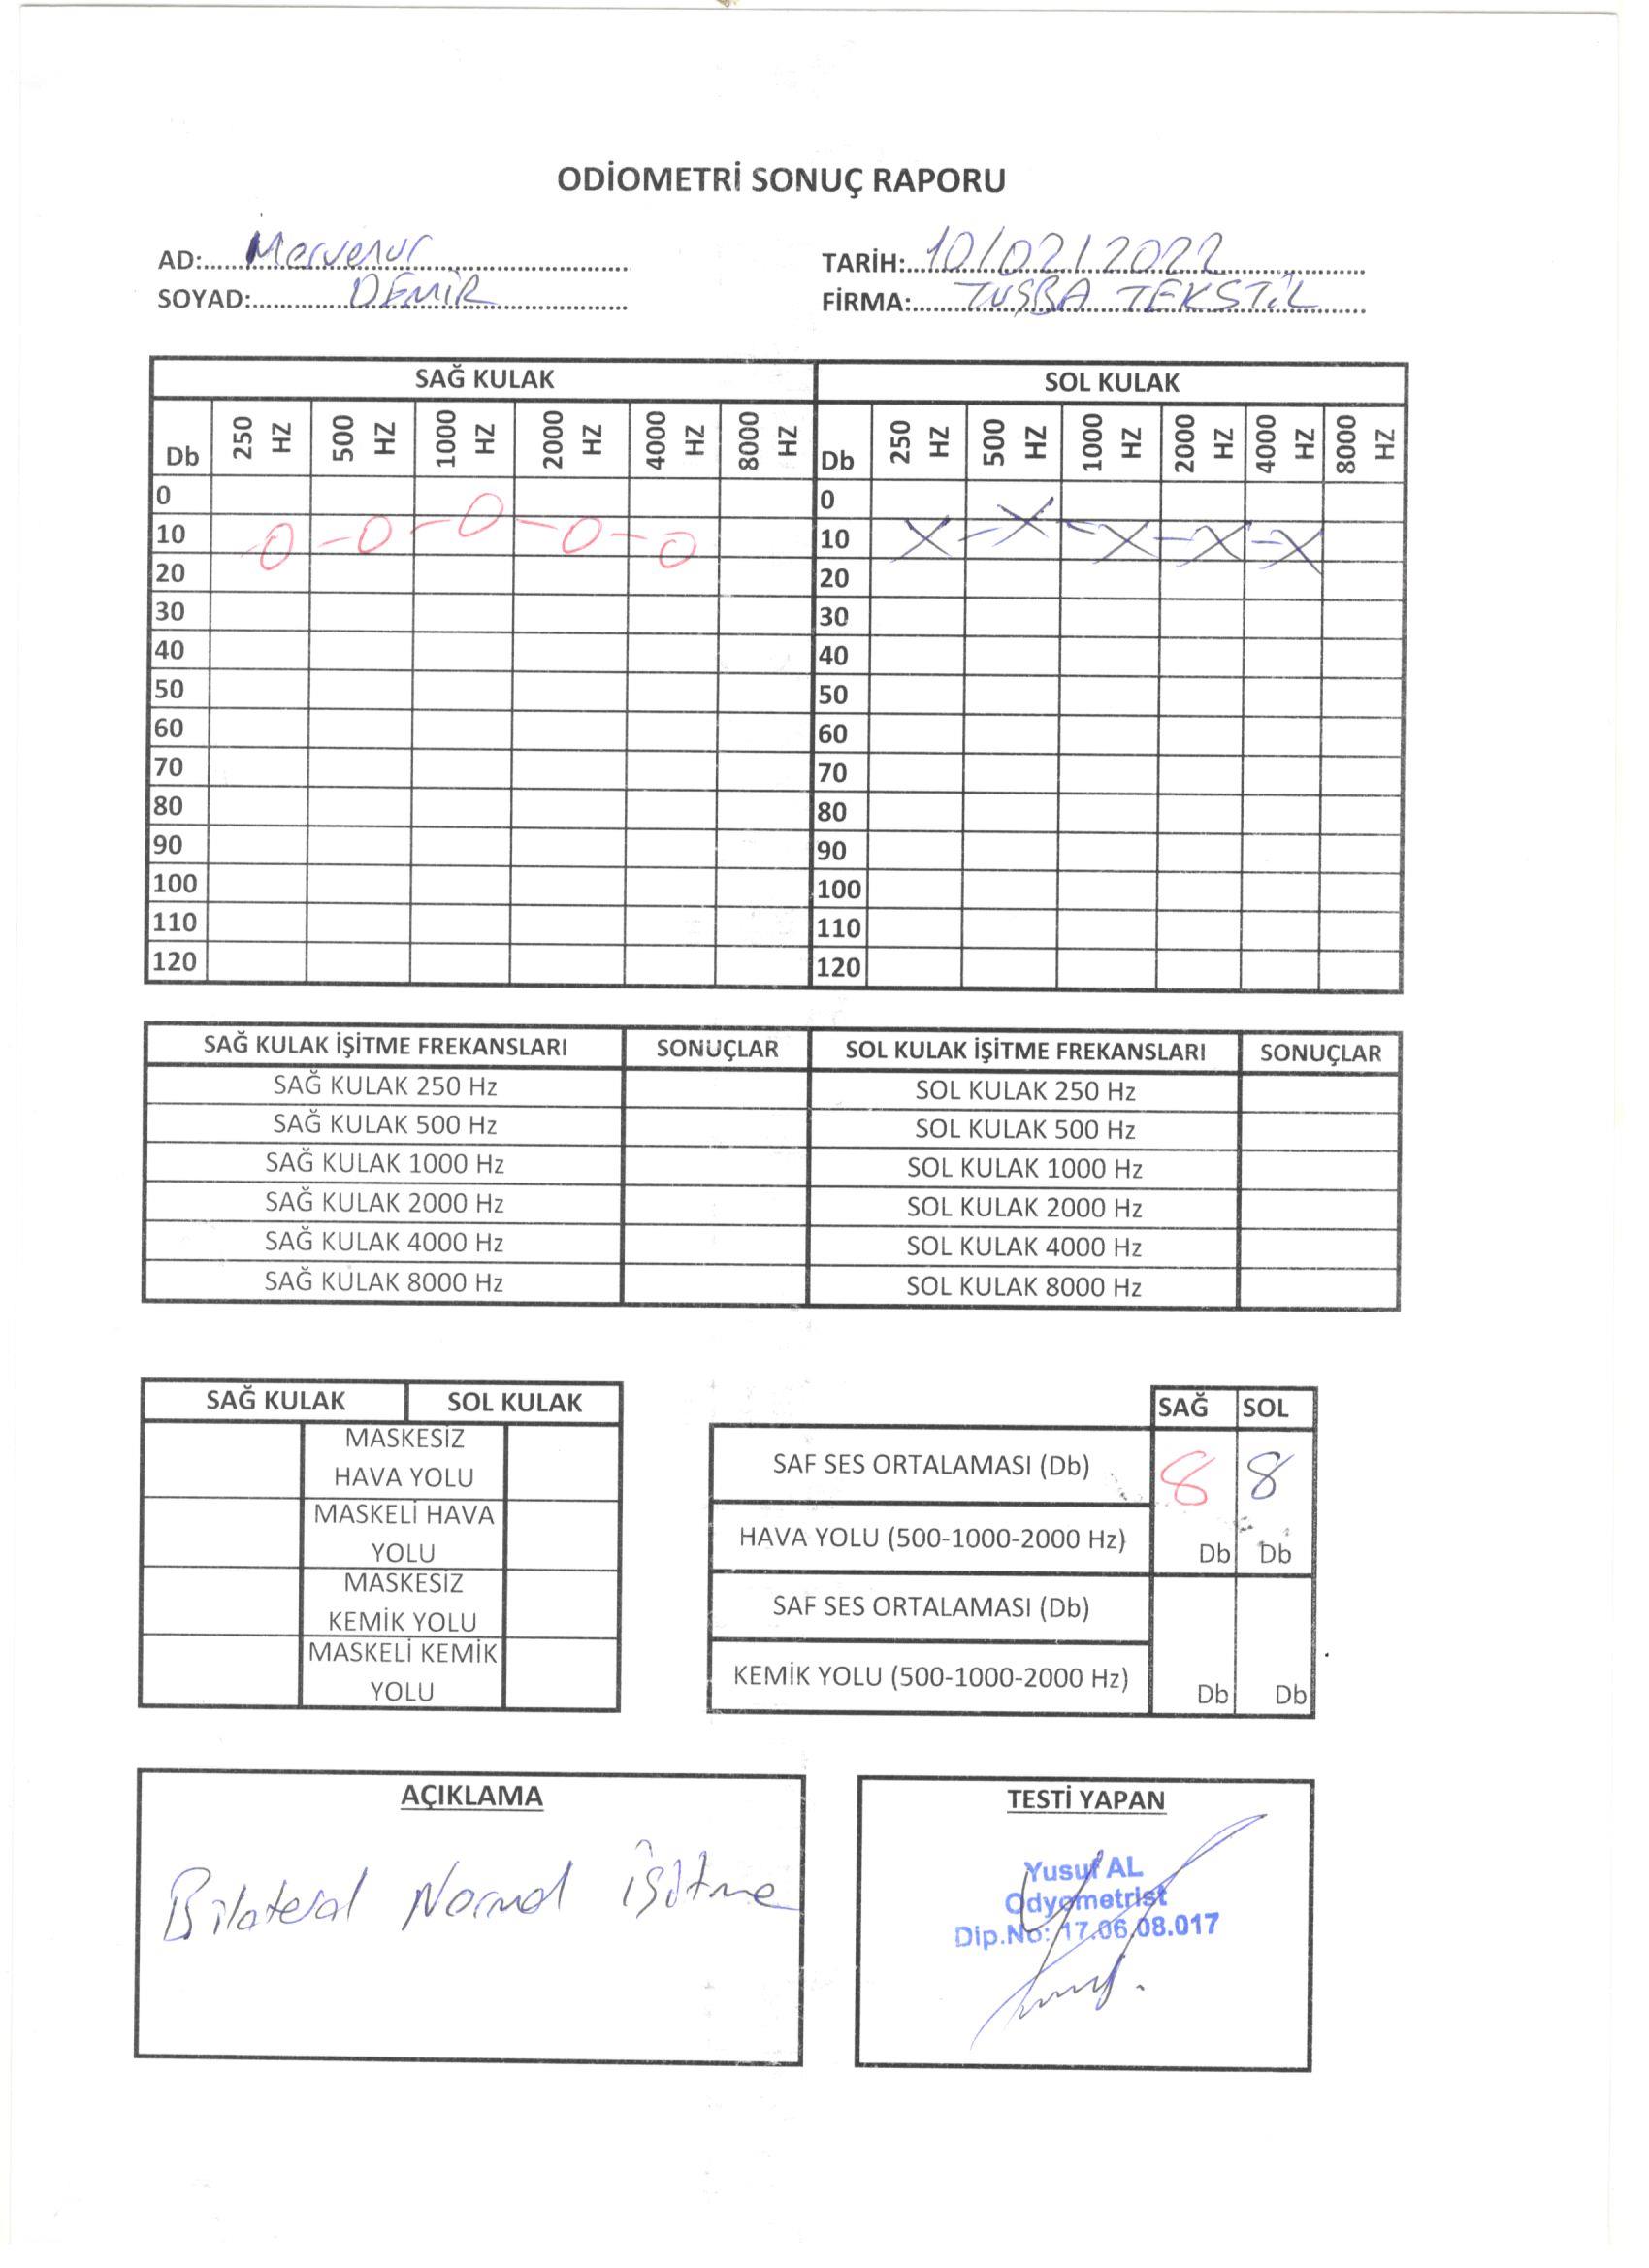 ODİOMETRİ SONUÇ RAPORU
AD: Mervenur
TARİH: 10/02/2022
SOYAD: DEMİR
FİRMA: TUŞBA TEKSTİL
SAĞ KULAK SOL KULAK
Db 250 HZ 500 HZ 1000 HZ 2000 HZ 4000 HZ 8000 HZ Db 250 HZ 500 HZ 1000 HZ 2000 HZ 4000 HZ 8000 HZ
0 0
10 10
20 20
30 30
40 40
50 50
60 60
70 70
80 80
90 90
100 100
110 110
120 120
SAĞ KULAK İŞİTME FREKANSLARI SONUÇLAR SOL KULAK İŞİTME FREKANSLARI SONUÇLAR
SAĞ KULAK 250 Hz SOL KULAK 250 Hz
SAĞ KULAK 500 Hz SOL KULAK 500 Hz
SAĞ KULAK 1000 Hz SOL KULAK 1000 Hz
SAĞ KULAK 2000 Hz SOL KULAK 2000 Hz
SAĞ KULAK 4000 Hz SOL KULAK 4000 Hz
SAĞ KULAK 8000 Hz SOL KULAK 8000 Hz
SAĞ KULAK SOL KULAK
MASKESİZ
HAVA YOLU
MASKELİ HAVA
YOLU
MASKESİZ
KEMİK YOLU
MASKELİ KEMİK
YOLU
SAĞ SOL
SAF SES ORTALAMASI (Db) 8 8
HAVA YOLU (500-1000-2000 Hz) Db Db
SAF SES ORTALAMASI (Db)
KEMİK YOLU (500-1000-2000 Hz) Db Db
AÇIKLAMA
Bilateral Normal İşitme
TESTİ YAPAN
Yusuf AL
Odyometrist
Dip.No: 17.06.08.017